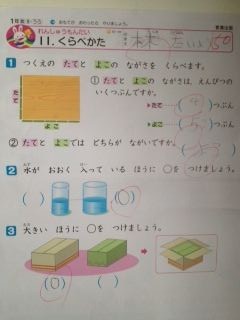 1年算 ⑧-55
おもてが おわったら やりましょう。
れんしゅうもんだい
11. くらべかた
150
1 つくえの たてと よこの ながさを くらべます。
たて
よこ
① たてと よこの ながさは、えんぴつの
いくつぶんですか。
たて (4) つぶん
よこ つぶん
② たてと よこでは どちらが ながいですか。
2 水が おおく 入って いる ほうに ○を つけましょう。
( ) (○)
3 大きい ほうに ○を つけましょう。
(○) ( )